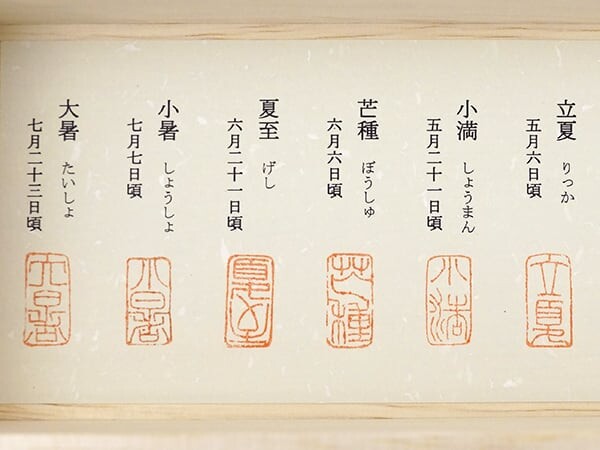 立夏 りっか
五月六日頃
立夏
小満 しょうまん
五月二十一日頃
小満
芒種 ぼうしゅ
六月六日頃
芒種
夏至 げし
六月二十一日頃
夏至
小暑 しょうしょ
七月七日頃
小暑
大暑 たいしょ
七月二十三日頃
大暑